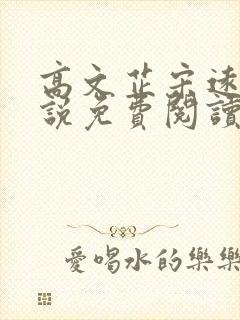 高文芷宋遠
説免費閱讀
愛喝水的樂樂